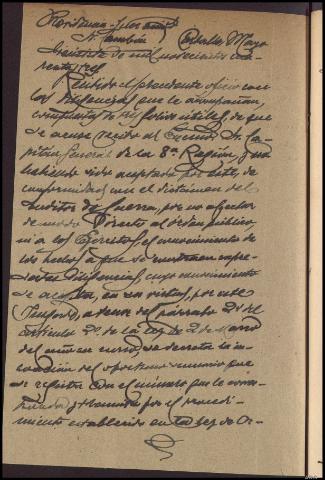 Providencia = Juez
Sr. Cambón Ceballos Mayo
treinta de mil novecientos cua-
renta y tres
Recibido el precedente oficio con
las diligencias que le acompañan,
compuestas de tres folios utiles, de que
se acuse recibo al Excmo. Sr. Ca-
pitán General de la 8ª Región, y no
habiendo sido aceptada por éste, de
conformidad con el dictamen del
Auditor de Guerra, por no afectar
de modo directo al orden público,
ni a los Ejercitos el conocimiento de
los hechos a que se contraen expre-
sadas diligencias cuyo conocimiento
se acepta, en su virtud, por este
Juzgado, a tenor del párrafo 2º del
artículo 2º de la Ley de 2 de Marzo
del año en curso, se decreta la in-
coación del oportuno sumario que
se registre con el número que le corres-
ponda y tramite por el procedi-
miento establecido en la Ley de Or-